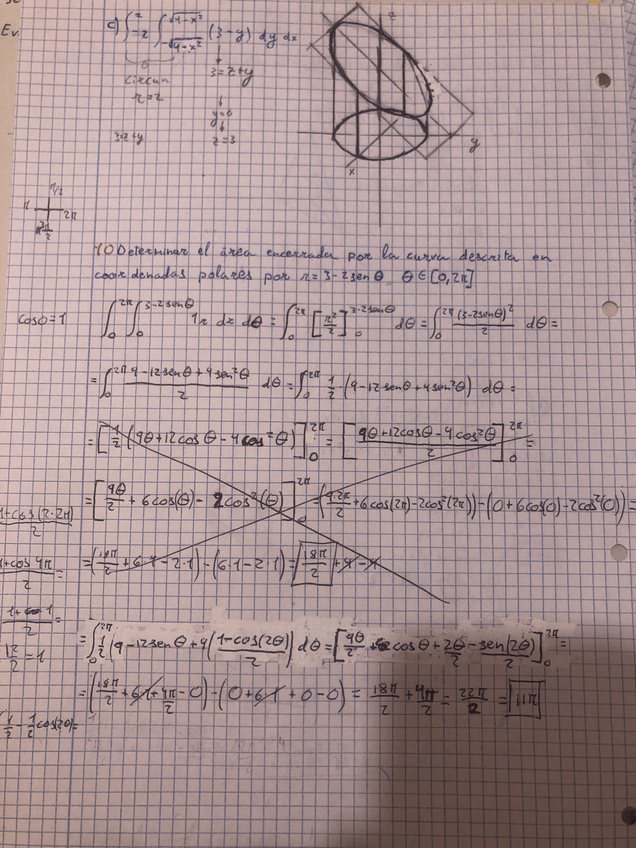 Ev.
c) ∫_{-2}^{2} ∫_{-√(4-x²)}^{√(4-x²)} (3-y) dy dx
z
circun
3=z+y
r=2
y=0
3=z+y
z=3
y
x
π/2
π 2π
3π/2
10 Determinar el área encerrada por la curva descrita en
coordenadas polares por r=3-2senθ θ∈[0,2π]
cos0=1 ∫_0^{2π} ∫_0^{3-2senθ} 1r dr dθ = ∫_0^{2π} [r²/2]_0^{3-2senθ} dθ = ∫_0^{2π} (3-2senθ)²/2 dθ =
= ∫_0^{2π} (9-12senθ+4sen²θ)/2 dθ = ∫_0^{2π} 1/2 · (9-12senθ+4sen²θ) dθ =
= [1/2 (9θ+12cosθ-4cos²θ)]_0^{2π} = [(9θ+12cosθ-4cos²θ)/2]_0^{2π} =
= [9θ/2 + 6cos(θ) - 2cos²(θ)]_0^{2π} = (9·2π/2 + 6cos(2π) - 2cos²(2π)) - (0+6cos(0)-2cos²(0)) =
1+cos(2·2π)/2
= (18π/2 + 6·1 - 2·1) - (6·1-2·1) = 18π/2 + 4 - 4
1+cos4π/2 =
1+1/2 =
= ∫_0^{2π} 1/2 (9-12senθ+4(1-cos(2θ)/2)) dθ = [9θ/2 + 6cosθ + 2θ/2 - sen(2θ)/2]_0^{2π} =
= 1
= (18π/2 + 6·1 + 4π/2 - 0) - (0+6·1+0-0) = 18π/2 + 4π/2 = 22π/2 = 11π
1/2 - 1/2 cos(2θ) =